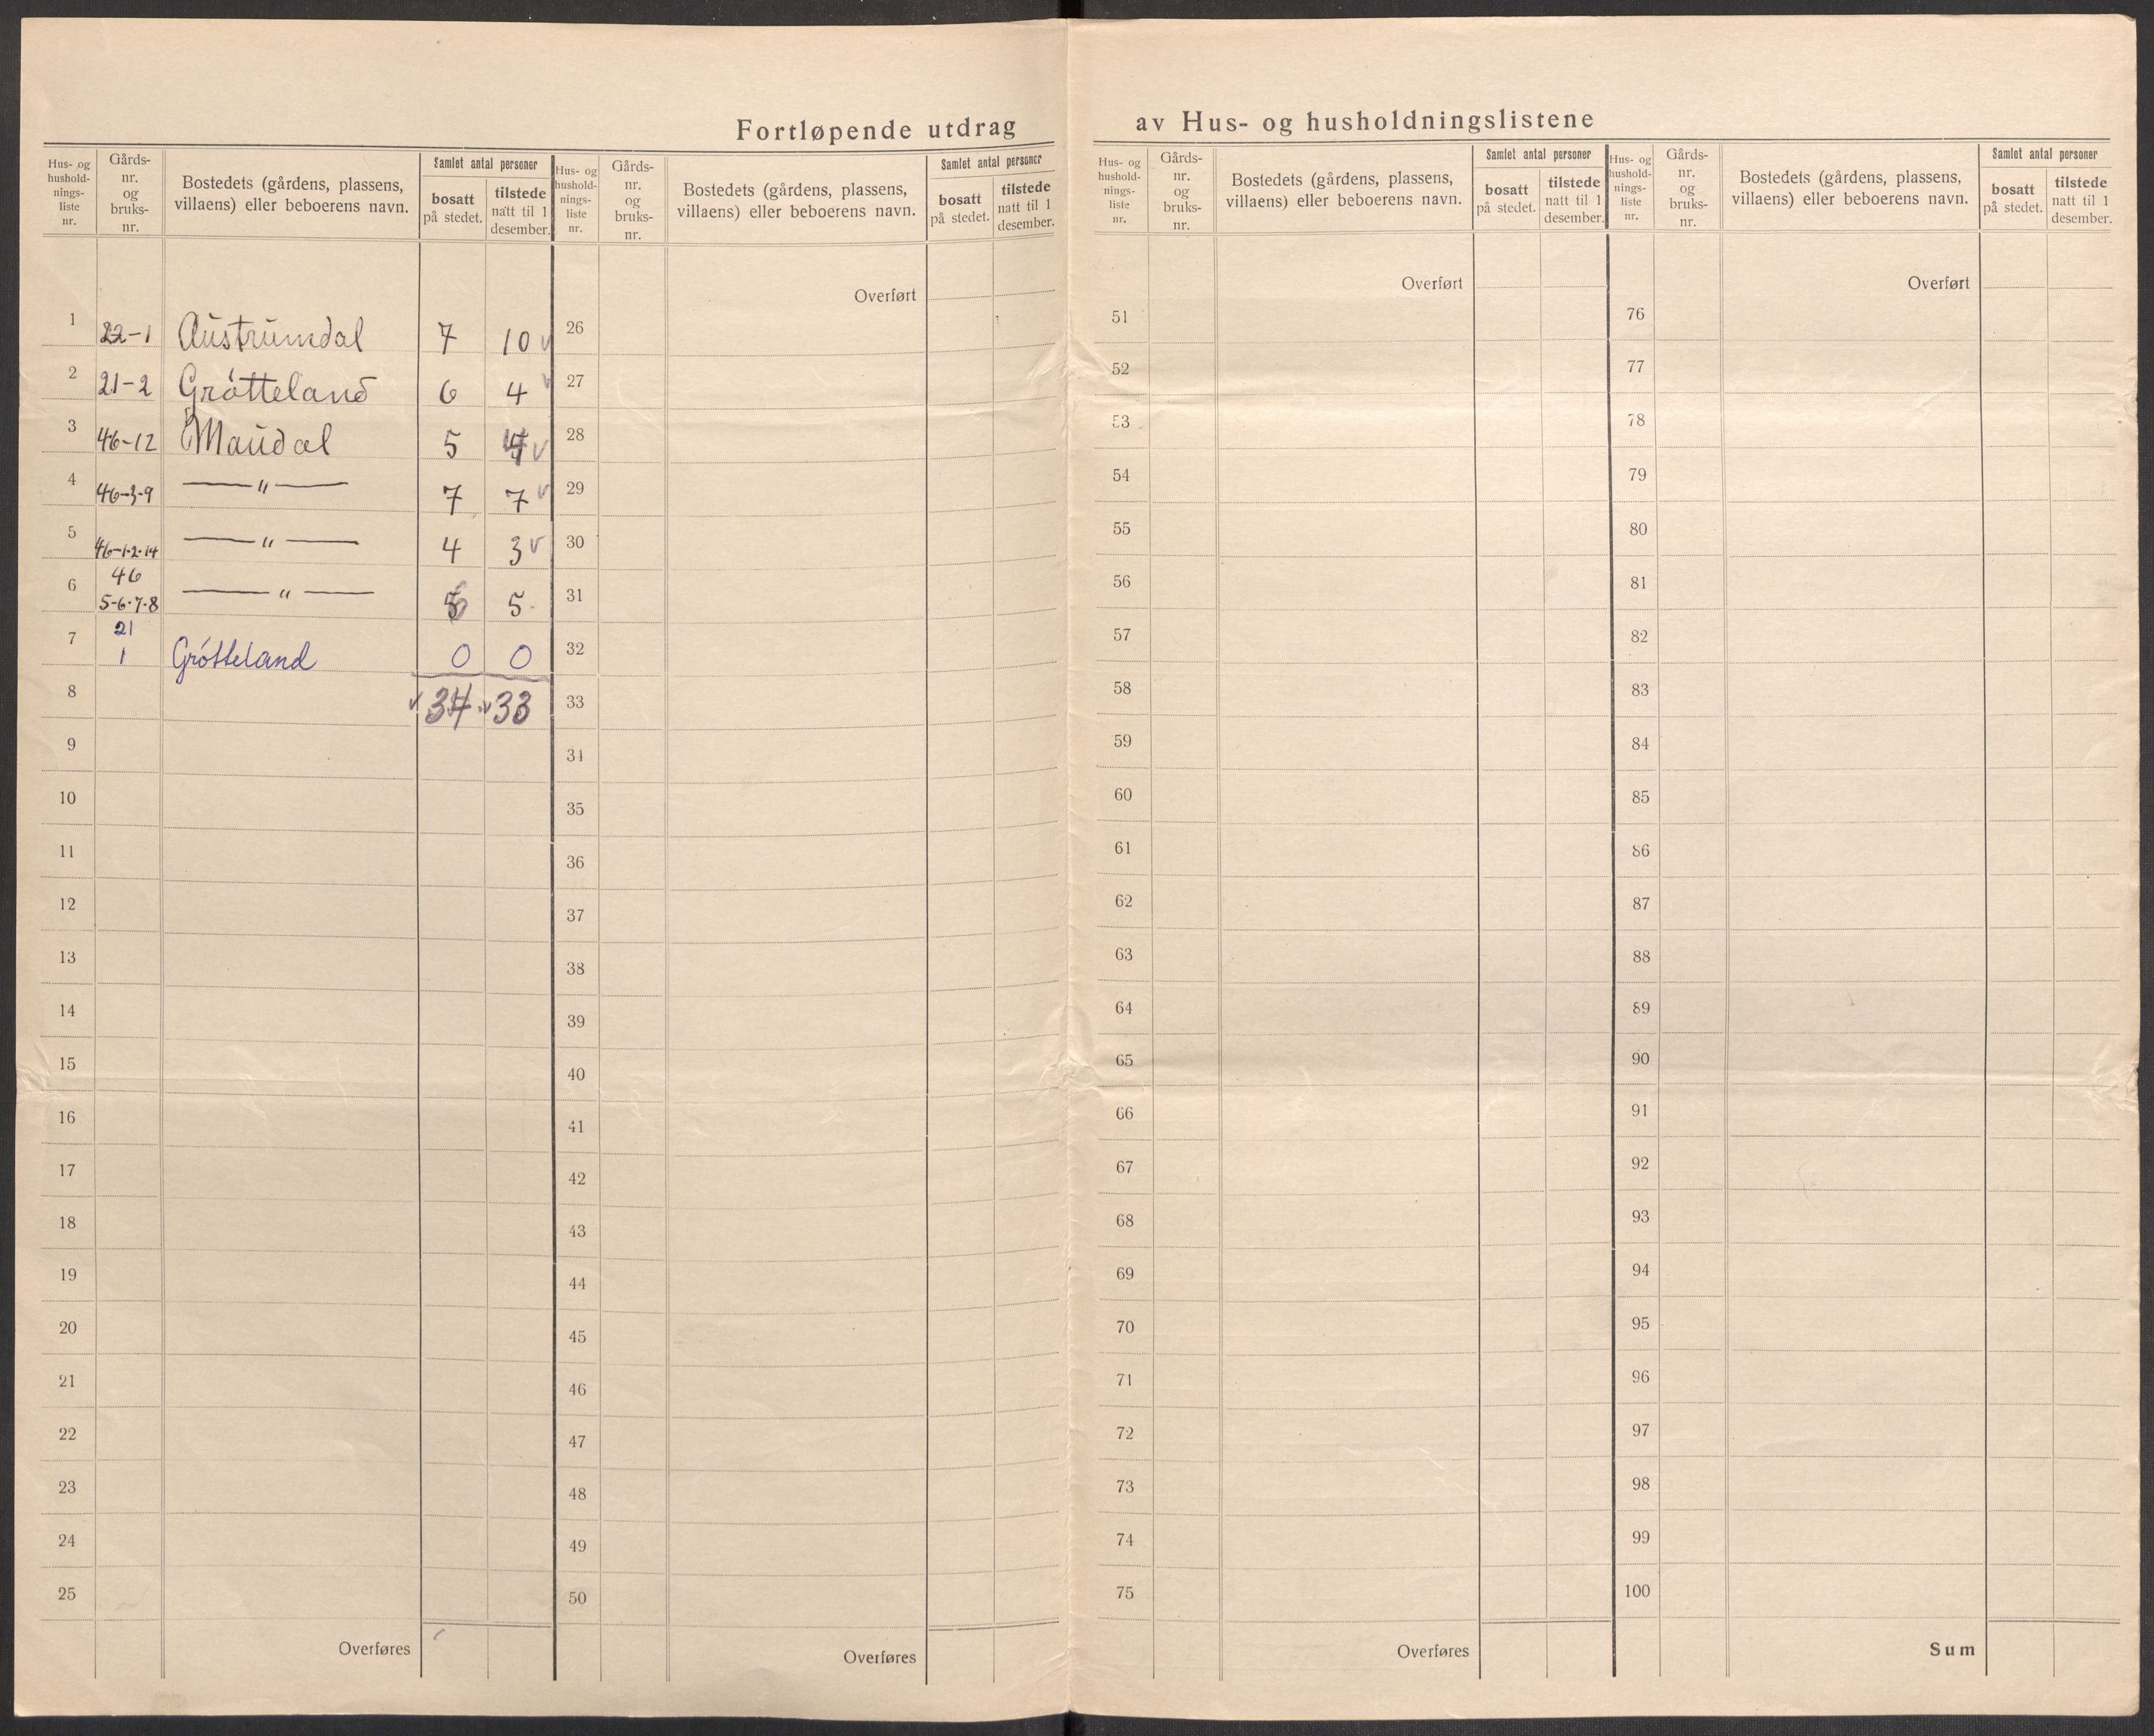 Fortløpende utdrag av Hus- og husholdningslistene
Hus- og
hushold-
nings-
liste
nr.
Gårds-
nr.
og
bruks-
nr.
Bostedets (gårdens, plassens,
villaens) eller beboerens navn.
Samlet antal personer
bosatt
på stedet.
tilstede
natt til 1
desember.
1 22-1 Austrumdal 7 10 v
2 21-2 Gròtteland 6 4 v
3 46-12 Maudal 5 v
4 46-3-9 — " — 7 7 v
5 46-1-2-14 — " — 4 3 v
46
6 5-6-7-8 — " — 5
21
7 1 Gròtteland 0 0
8 v 34 v 33
9
10
11
12
13
14
15
16
17
18
19
20
21
22
23
24
25
Overføres
Hus- og
hushold-
nings-
liste
nr.
Gårds-
nr.
og
bruks-
nr.
Bostedets (gårdens, plassens,
villaens) eller beboerens navn.
Samlet antal personer
bosatt
på stedet.
tilstede
natt til 1
desember.
Overført
26
27
28
29
30
31
32
33
34
35
36
37
38
39
40
41
42
43
44
45
46
47
48
49
50
Overføres
Hus- og
hushold-
nings-
liste
nr.
Gårds-
nr.
og
bruks-
nr.
Bostedets (gårdens, plassens,
villaens) eller beboerens navn.
Samlet antal personer
bosatt
på stedet.
tilstede
natt til 1
desember.
Overført
51
52
53
54
55
56
57
58
59
60
61
62
63
64
65
66
67
68
69
70
71
72
73
74
75
Overføres
Hus- og
hushold-
nings-
liste
nr.
Gårds-
nr.
og
bruks-
nr.
Bostedets (gårdens, plassens,
villaens) eller beboerens navn.
Samlet antal personer
bosatt
på stedet.
tilstede
natt til 1
desember.
Overført
76
77
78
79
80
81
82
83
84
85
86
87
88
89
90
91
92
93
94
95
96
97
98
99
100
Sum